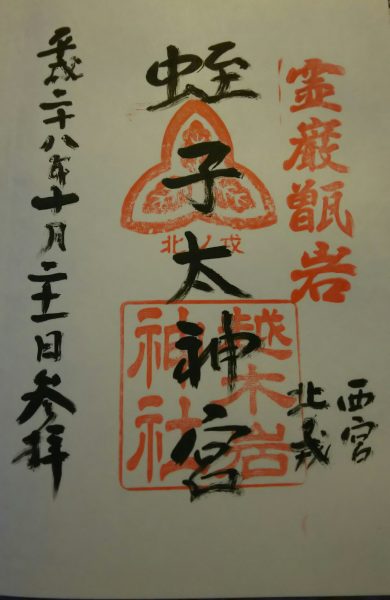 霊巌甑岩
西宮
北戎
蛭子太神宮
北ノ戎
越木岩
神社
平成二十八年十月二十一日参拝